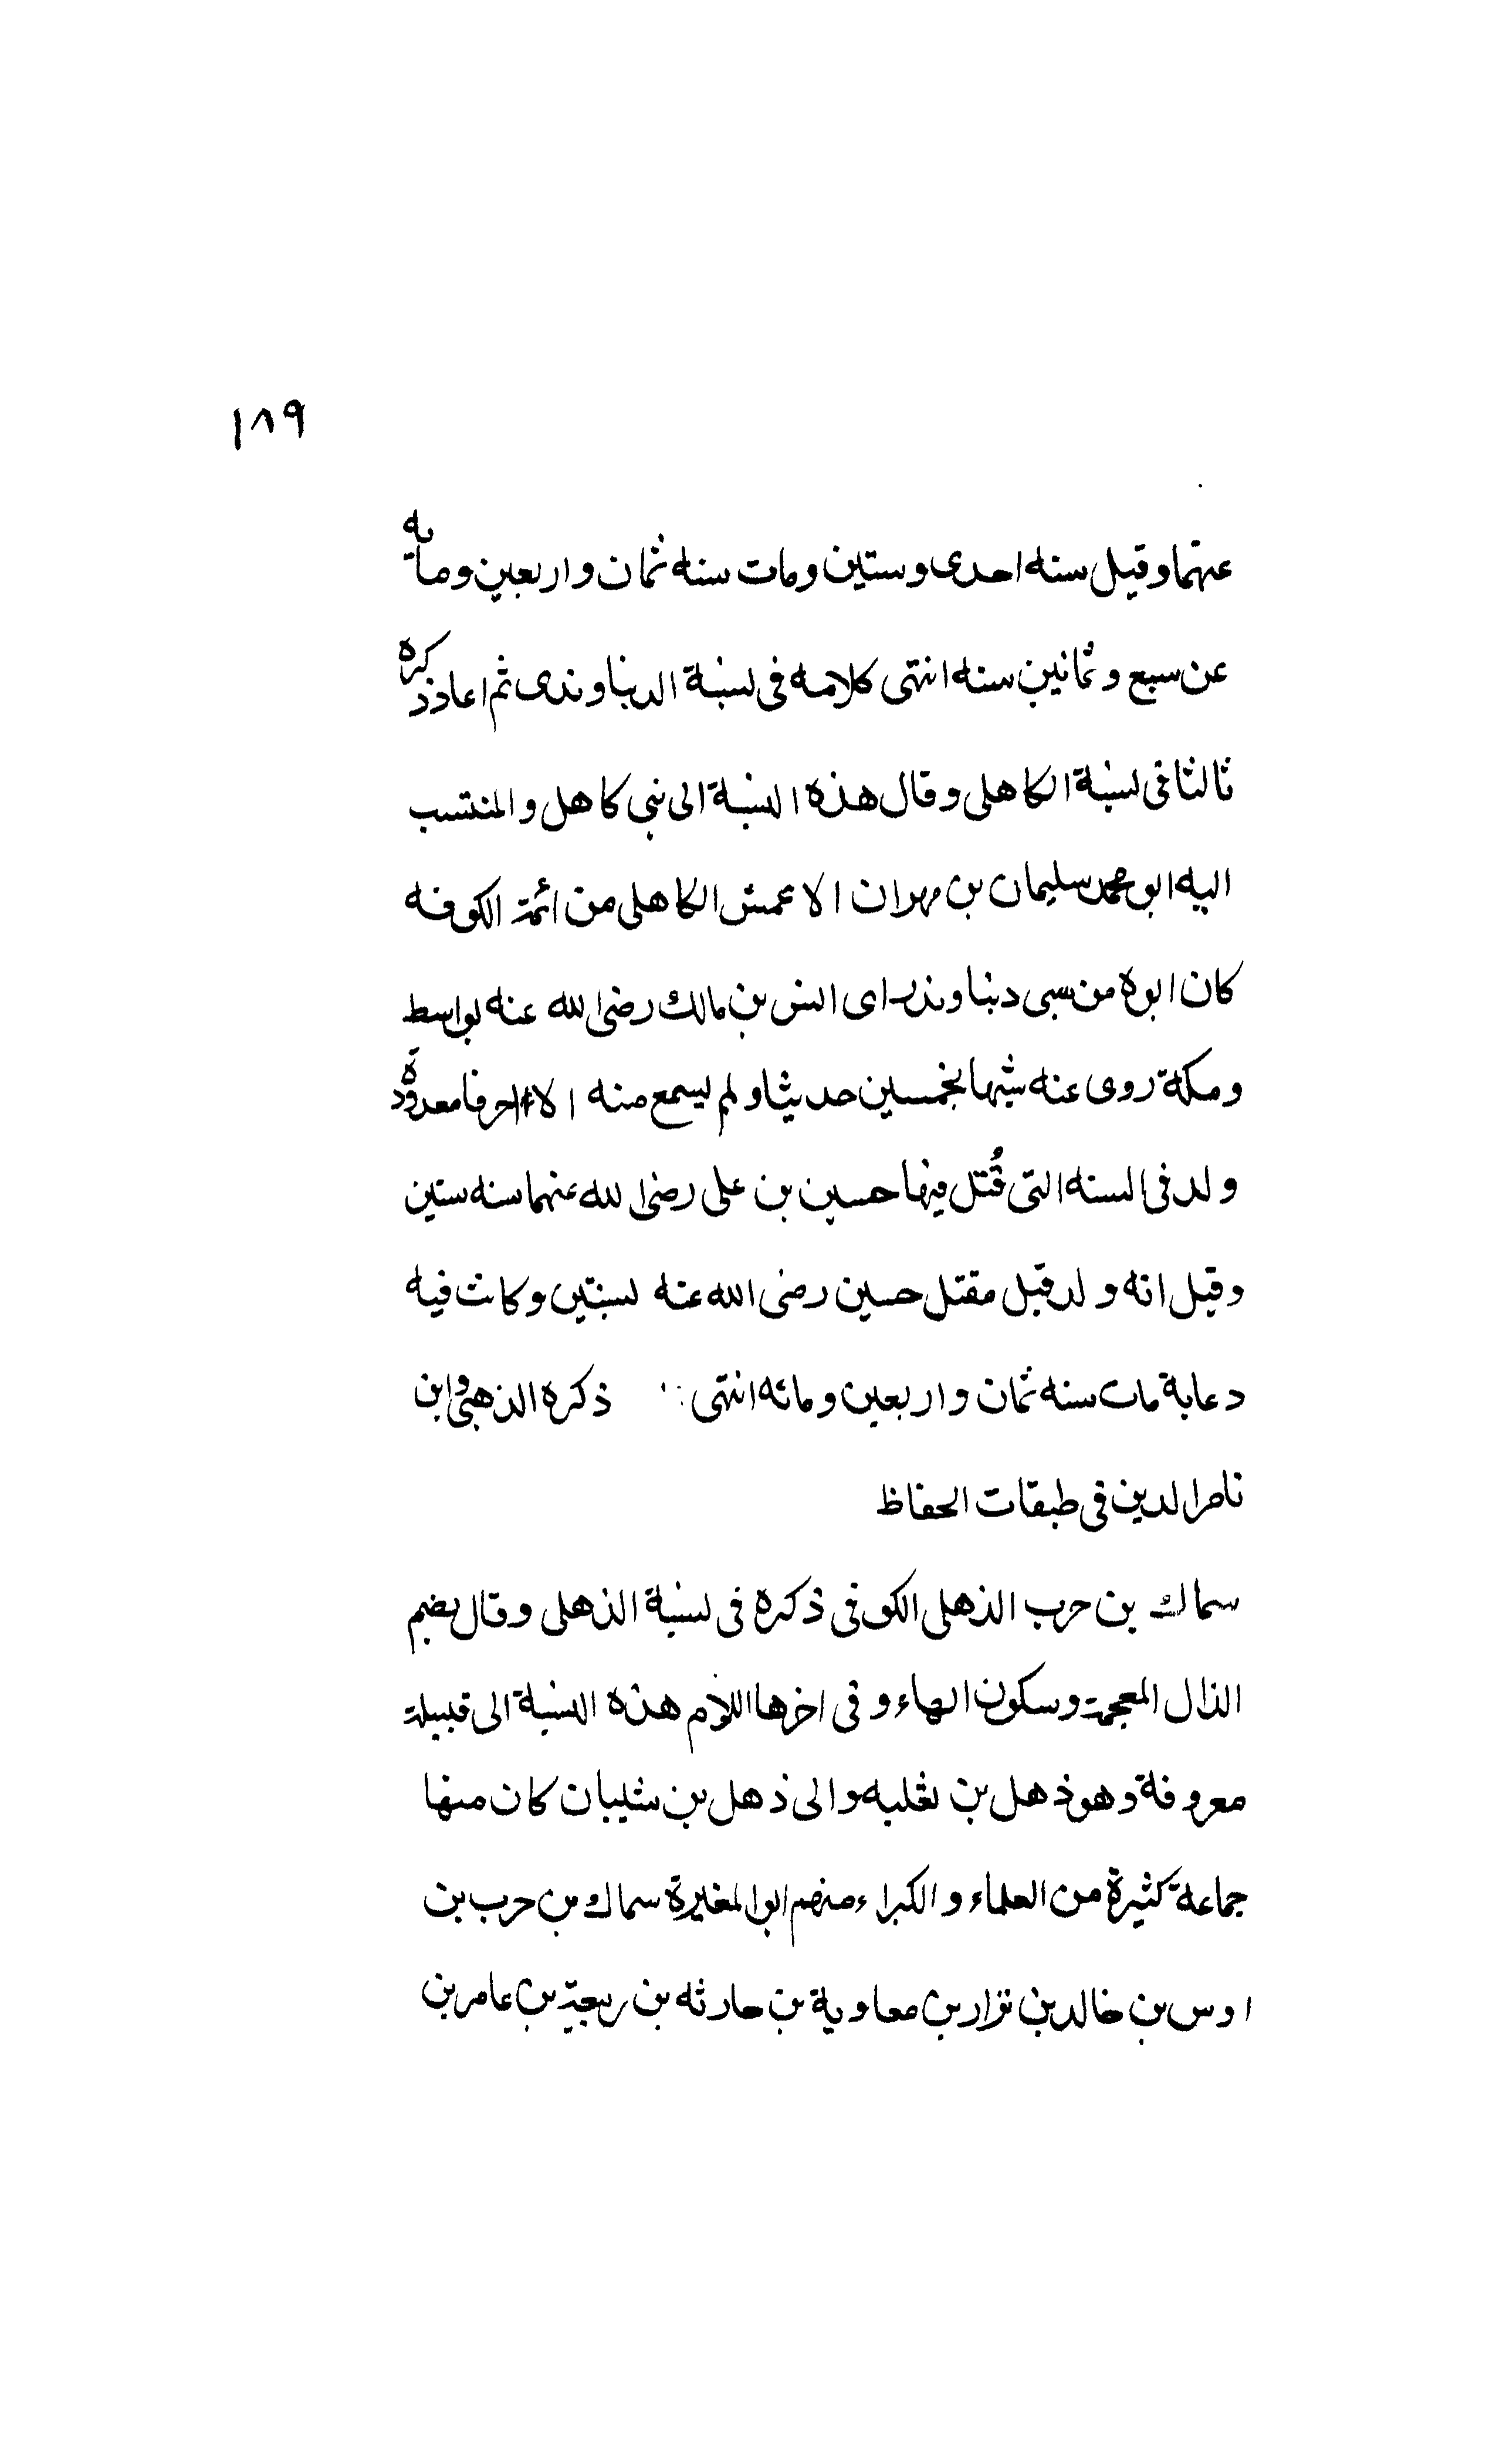 ١٨٩
عنهما وقيل سنه احدى وستين ومات سنه ثمان واربعين ومايه
عن سبع وثمانين سنه انتهى كلامه فى نسبة الدنباوندى ثم اعاد ذكره
ثالثا فى نسبة الكاهلى وقال هذه النسبة الى بنى كاهل والمنتسب
اليه ابو محمد سليمان بن مهران الاعمش الكاهلى من ائمة الكوفه
كان ابوه من سبى دنباوند راى انس بن مالك رضى الله عنه بواسط
ومكة روى عنه شبيها بخمسين حديثا ولم يسمع منه الا احرفا معدودة
ولد فى السنه التى قُتل فيها حسين بن على رضى الله عنهما سنه ستين
وقيل انه ولد قبل مقتل حسين رضى الله عنه لسنتين وكانت فيه
دعابة مات سنه ثمان واربعين ومائه انتهى ذكره الذهبى وابن
ناصر الدين فى طبقات الحفاظ
سماك بن حرب الذهلى الكوفى ذكره فى نسبة الذهلى وقال بضم
الذال المعجمة وسكون الهاء وفى اخرها اللام هذه النسبة الى قبيلة
معروفة وهو ذهل بن ثعلبه والى ذهل بن شيبان كان منها
جماعة كثيرة من العلماء والكبراء منهم ابو المغيرة سماك بن حرب بن
اوس بن خالد بن نزار بن معاوية بن حارثه بن ربيعة بن عامر بن